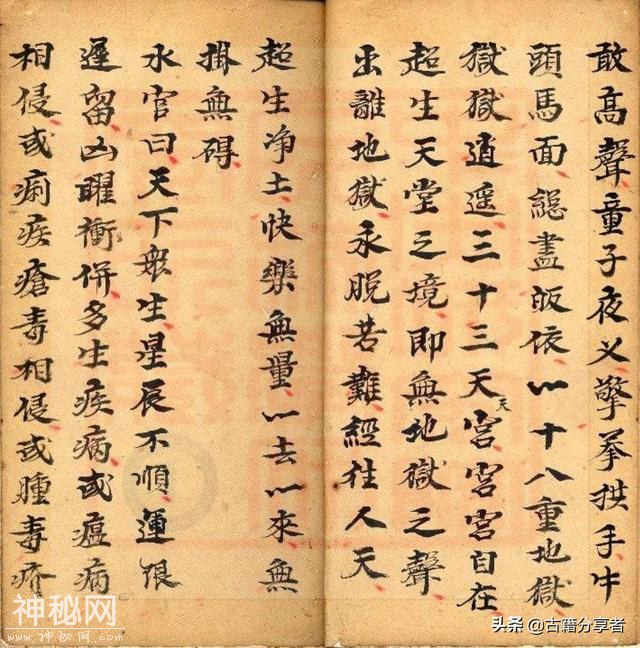 敢高聲童子夜乂擎拳拱手牛
頭馬面總盡皈依一十八重地獄
獄獄逍遥三十三天天宮宮宮自在
超生天堂之境即無地獄之聲
出離地獄永脱苦難經往人天
超生净土快樂無量一去一來無
掛無碍
水官曰天下衆生星辰不順運限
遲留凶曜衝併多生疾病或瘟病
相侵或痢疾瘡毒相侵或腫毒疥
神秘网
www.神秘网.com
头条 @古籍分享者